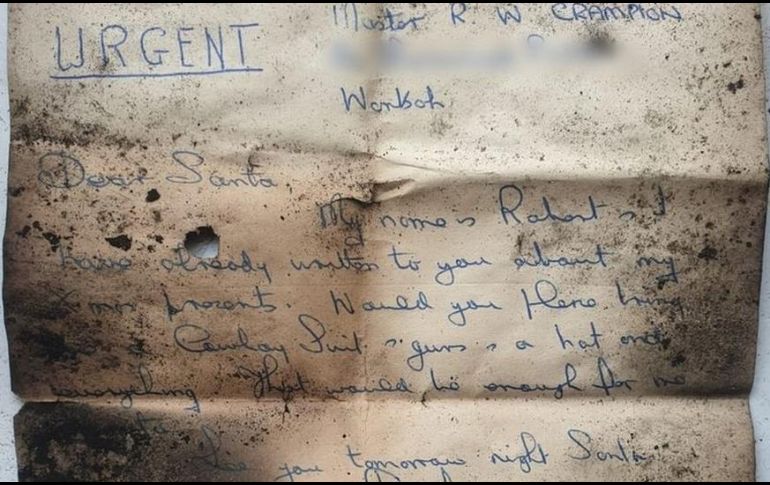 Master R W CRAMPION
URGENT
Worksoh
Dear Santa
My name is Robert & I
have already written to you about my
Xmas presents. Would you please bring
me a Cowboy Suit & guns & a hat and
everything That would be enough for me
See you tomorrow night Santa